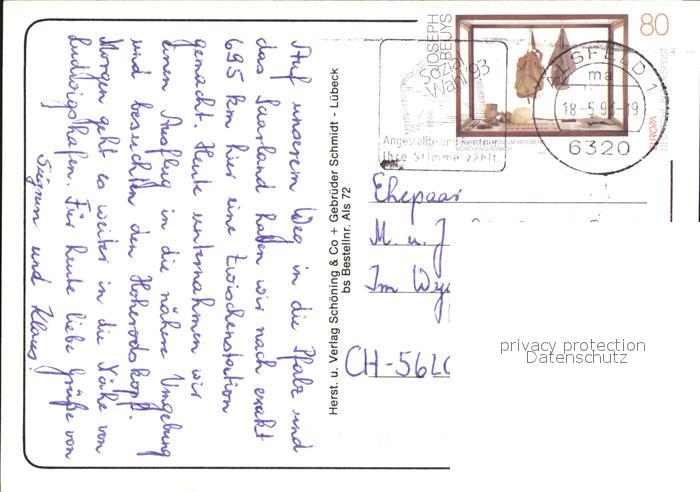 Auf unserem Weg in die Pfalz und
das Saarland haben wir nach exakt
695 km hier eine Zwischenstation
gemacht. Heute unternahmen wir
einen Ausflug in die nähere Umgebung
und besuchten den Hoherodskopf.
Morgen geht es weiter in die Nähe von
Ludwigshafen. Für heute liebe Grüße von
Sigrun und Klaus!
Herst. u. Verlag Schöning & Co + Gebrüder Schmidt - Lübeck
bs Bestellnr. Als 72
JOSEPH
BEUYS
80
EUROPA
Sozial
Wahl '93
Angestellte und Rentner
Ihre Stimme zählt.
ALSFELD 1
ma
18-5.93-19
6320
Ehepaar
M. u. J
Im
CH-562
privacy protection
Datenschutz